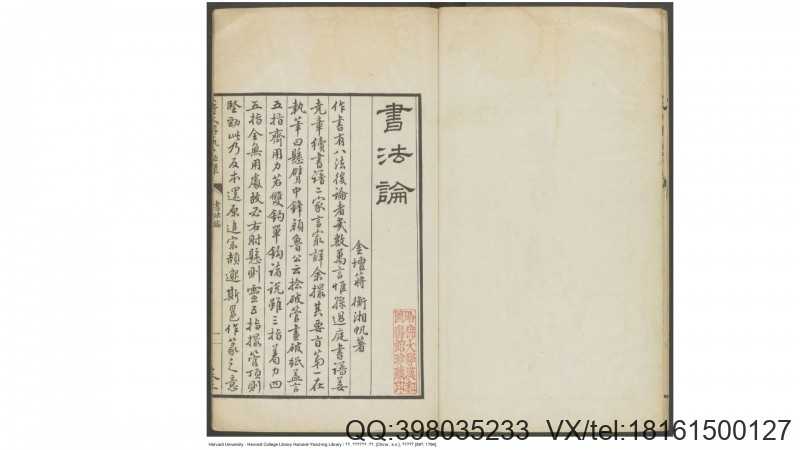 書法論
金壇蔣衡湘帆著
作書有八法後論者幾數萬言惟孫過庭書譜姜
堯章續書譜二家言最詳余撮其要旨第一在
執筆曰懸臂中鋒顏魯公云捻破管畫破紙蓋言
五指齊用力若雙鉤單鉤諸說雖三指着力四
五指全無用處故必右肘懸則靈五指撮管頂則
堅勁此乃反本還原追宗頡邈斯邕作篆之意
書法論
哈佛大學漢和圖書館珍藏印
Harvard University - Harvard College Library Harvard-Yenching Library
QQ:398035233 VX/tel:18161500127